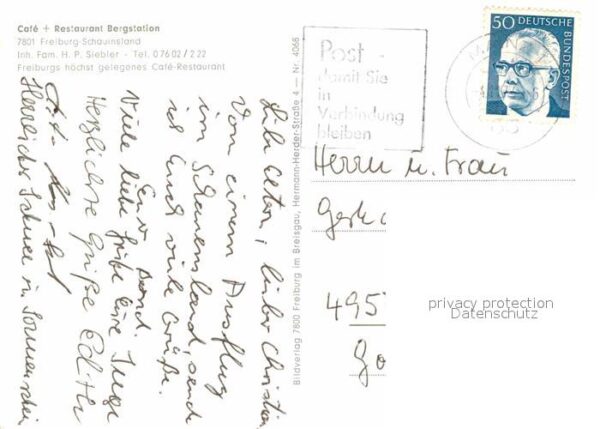 Café + Restaurant Bergstation
7801 Freiburg-Schauinsland
Inh. Fam. H. P. Siebler - Tel. 07602/222
Freiburgs höchst gelegenes Café-Restaurant
Liebe Eltern, lieber Christian
Vom einem Ausflug
im Schauinsland sende
ich Euch viele Grüße.
Euer Bernd.
Viele liebe Grüße Eure Inge
Herzlichste Grüße Edith
Herrlicher Schnee u. Sonnenschein
Bildverlag 7800 Freiburg im Breisgau, Hermann-Herder-Straße 4 — Nr. 4066
Post -
damit Sie
in
Verbindung
bleiben
50 DEUTSCHE
BUNDESPOST
Herrn u. Frau
495
privacy protection
Datenschutz